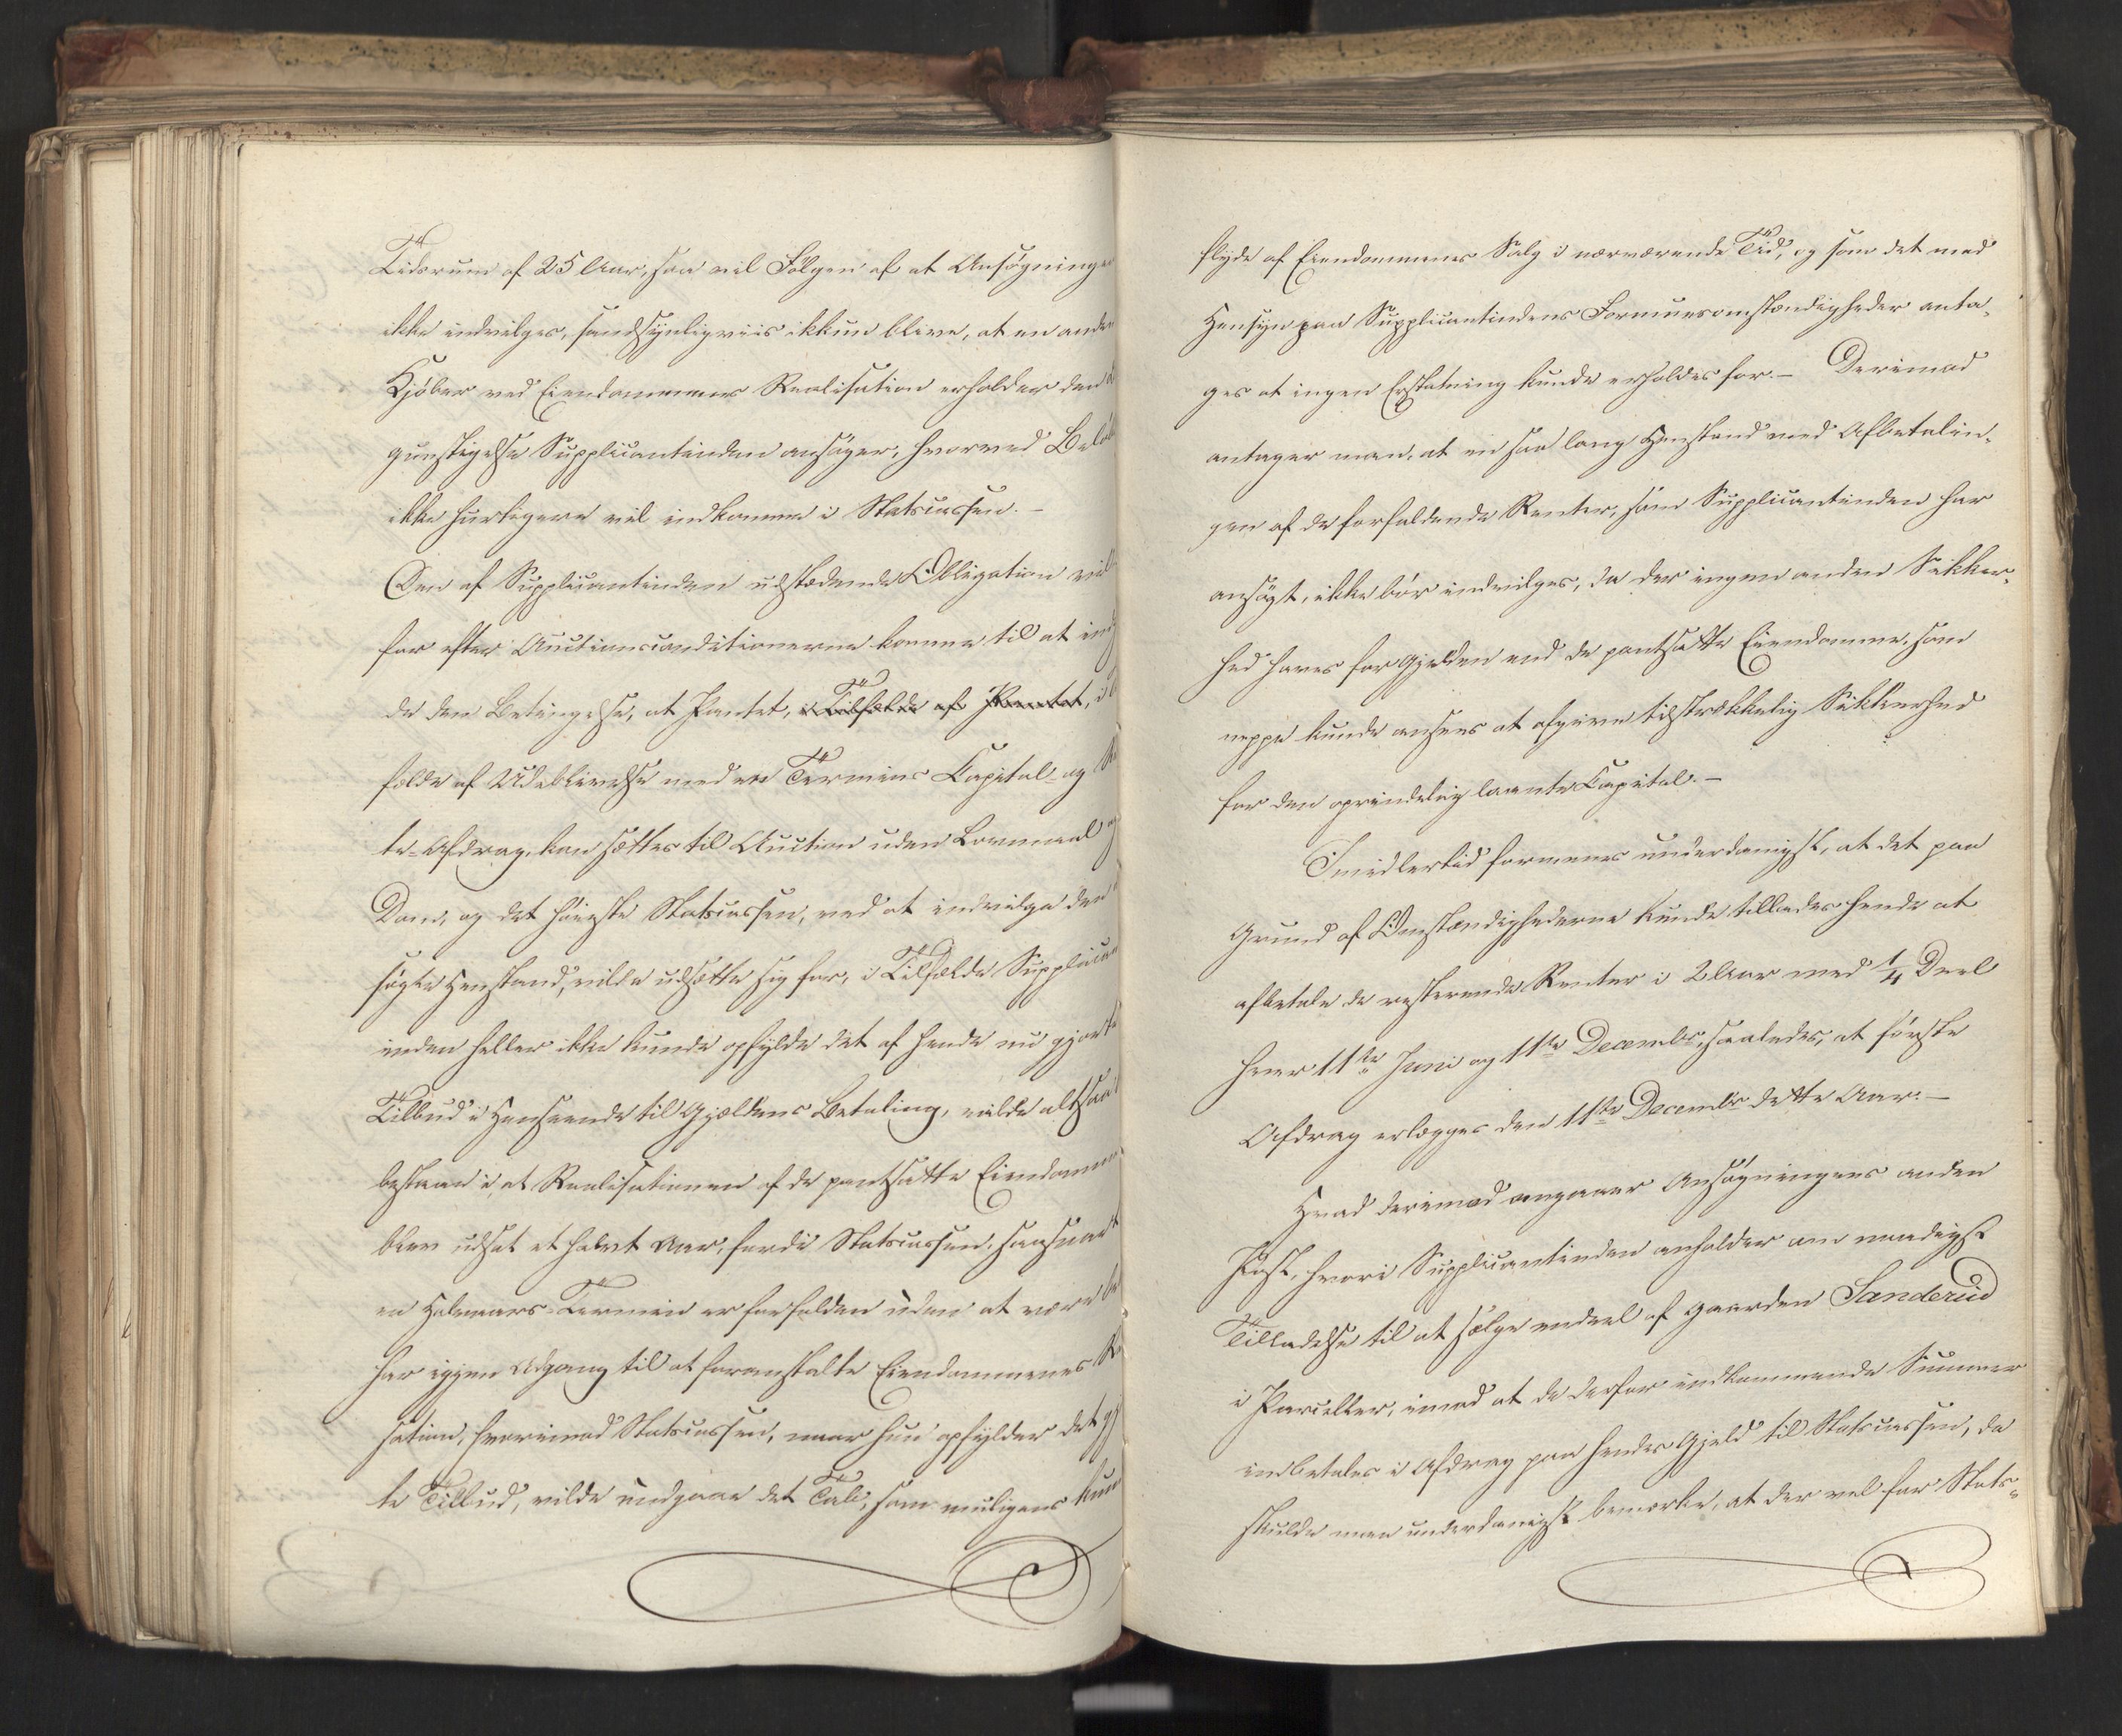 Tidsrum af 25 Aar, saa vil Følgen af at Ansøgningen
ikke indvilges, sandsynligviis ikkun blive, at en anden
Kjøber ved Eiendommenes Realisation erholder den
gunstigelse Supplicantinden ansøger, hvorved Belø
ikke hurtigere vil indkomme i Statscassen. –
Den af Supplicantinden udstædende Obligation vil
for efter Auctionsconditionerne komme til at ind
de den Betingelse, at Pantet, i Tilfælde af Pantet, i
fælde af Udeblivelse med en Termins Capital- og
te-Afdrag, kan sættes til Auction uden Lovmaal
Dom, og det høieste Statscassen, ved at indvilge den
søgte Henstand, vilde udsætte sig for, i Tilfælde Supplican
inden heller ikke kunde opfylde det af hende nu gjorte
Tilbud i Henseende til Gjældens Betaling, vilde altsaa
bestaae i, at Realisationen af de pantsatte Eiendomme
blev udsat et halvt Aar, fordi Statscassen, saasnart
en Halvaars-Termin er forfalden uden at være be
har igjen Adgang til at foranstalte Eiendommenes
sation, hvorimod Statscassen, naar hun opfylder det gj
te Tilbud, vilde undgaae det Tab, som muligens kun
flyde af Eiendommenes Salg i nærværende Tid, og som det med
Hensyn paa Supplicantindens Formuesomstændigheder anta-
ges at ingen Erstatning kunde erholdes for. – Derimod
antager man, at en saa lang Henstand med Afbetalin-
gen af de forfaldende Renter, som Supplicantinden har
ansøgt, ikke bør indvilges, da der ingen anden Sikker-
hed haves for Gjælden end de pantsatte Eiendomme, som
neppe kunde ansees at afgive tilstrækkelig Sikkerhed
for den oprindelig laante Capital. –
Imidlertid formenes underdanigst, at det paa
Grund af Omstændighederne kunde tillades hende at
afbetale de resterende Renter i 2 Aar med 1/4 Deel
hver 11te Juni og 11te Decembr, saaledes, at første
Afdrag erlægges den 11te Decembr dette Aar. –
Hvad derimod angaaer Ansøgningens anden
Post, hvori Supplicantinden anholder om naadigst
Tilladelse til at sælge endeel af Gaarden Sanderud
i Parceller, imod at de derfor indkommende Summer
indbetales i Afdrag paa hendes Gjeld til Statscassen, da
skulde man underdanigst bemærke, at der vel for Stats-